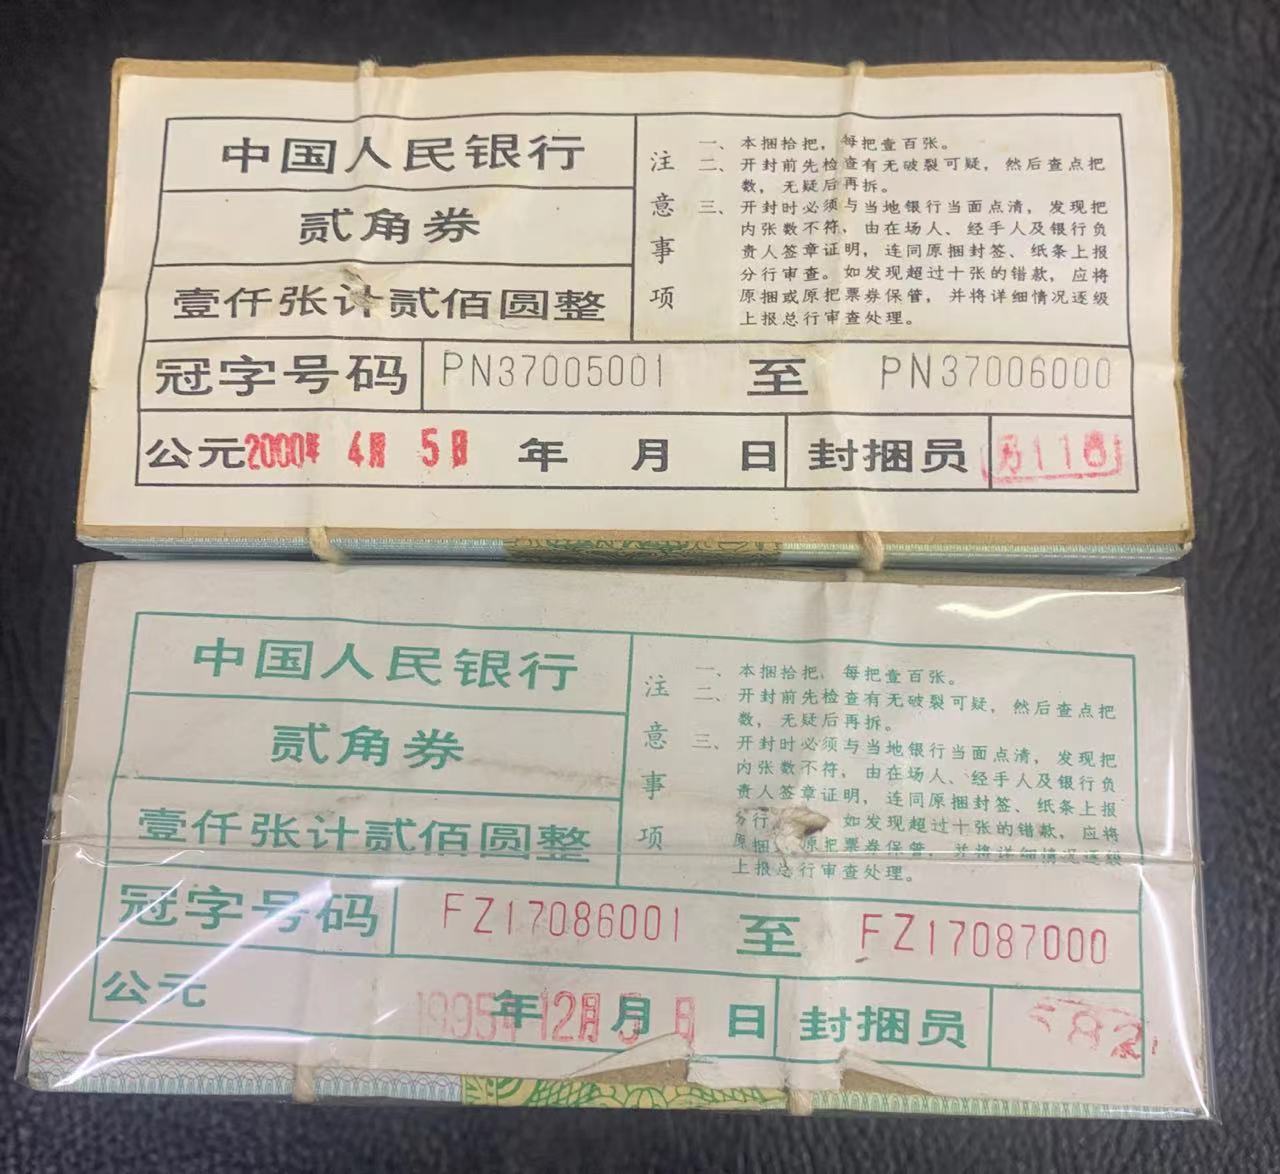 中国人民银行
贰角券
壹仟张计贰佰圆整
注意事项
一、本捆拾把，每把壹百张。
二、开封前先检查有无破裂可疑，然后查点把
数，无疑后再拆。
三、开封时必须与当地银行当面点清，发现把
内张数不符，由在场人、经手人及银行负
责人签章证明，连同原捆封签、纸条上报
分行审查。如发现超过十张的错款，应将
原捆或原把票券保管，并将详细情况逐级
上报总行审查处理。
冠字号码 PN37005001 至 PN37006000
公元 2000年 4月 5日 年 月 日 封捆员 118
中国人民银行
贰角券
壹仟张计贰佰圆整
注意事项
一、本捆拾把，每把壹百张。
二、开封前先检查有无破裂可疑，然后查点把
数，无疑后再拆。
三、开封时必须与当地银行当面点清，发现把
内张数不符，由在场人、经手人及银行负
责人签章证明，连同原捆封签、纸条上报
分行 如发现超过十张的错款，应将
原捆 原把票券保管，并将详细情况逐级
上报总行审查处理。
冠字号码 FZ17086001 至 FZ17087000
公元 1995年 12月 5日 年 月 日 封捆员 82